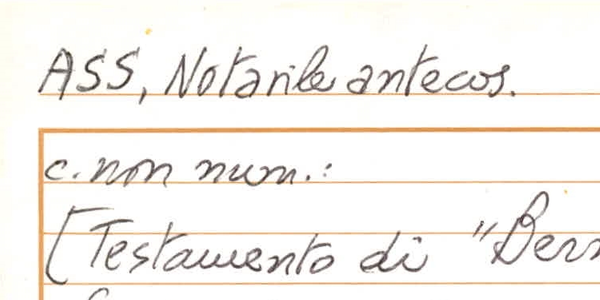 ASS, Notarile antecos.
c. non num.:
[Testamento di "Ber